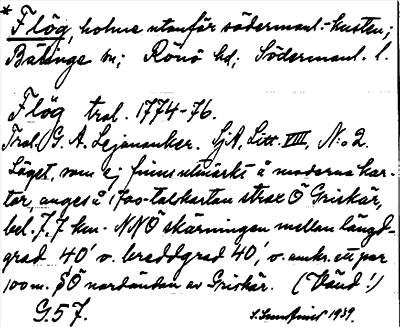 * Flög, holme utanför södermanl.-kusten;
Bälinge sn; Rönö hd; Södermanl. l.
Flög trol. 1774-76.
Trol. G. A. Lejonanker. SjA, Litt. VIII, N:o 2.
Läget, som ej finns utmärkt å moderna kar-
tor, anges å 1700-talskartan strax Ö Griskär,
bel. 7,7 km. NNÖ skärningen mellan längd-
grad 40' o. breddgrad 40', o. omkr. ett par
100 m. SÖ nordändan av Griskär. (Vänd!)
G57. 1939.